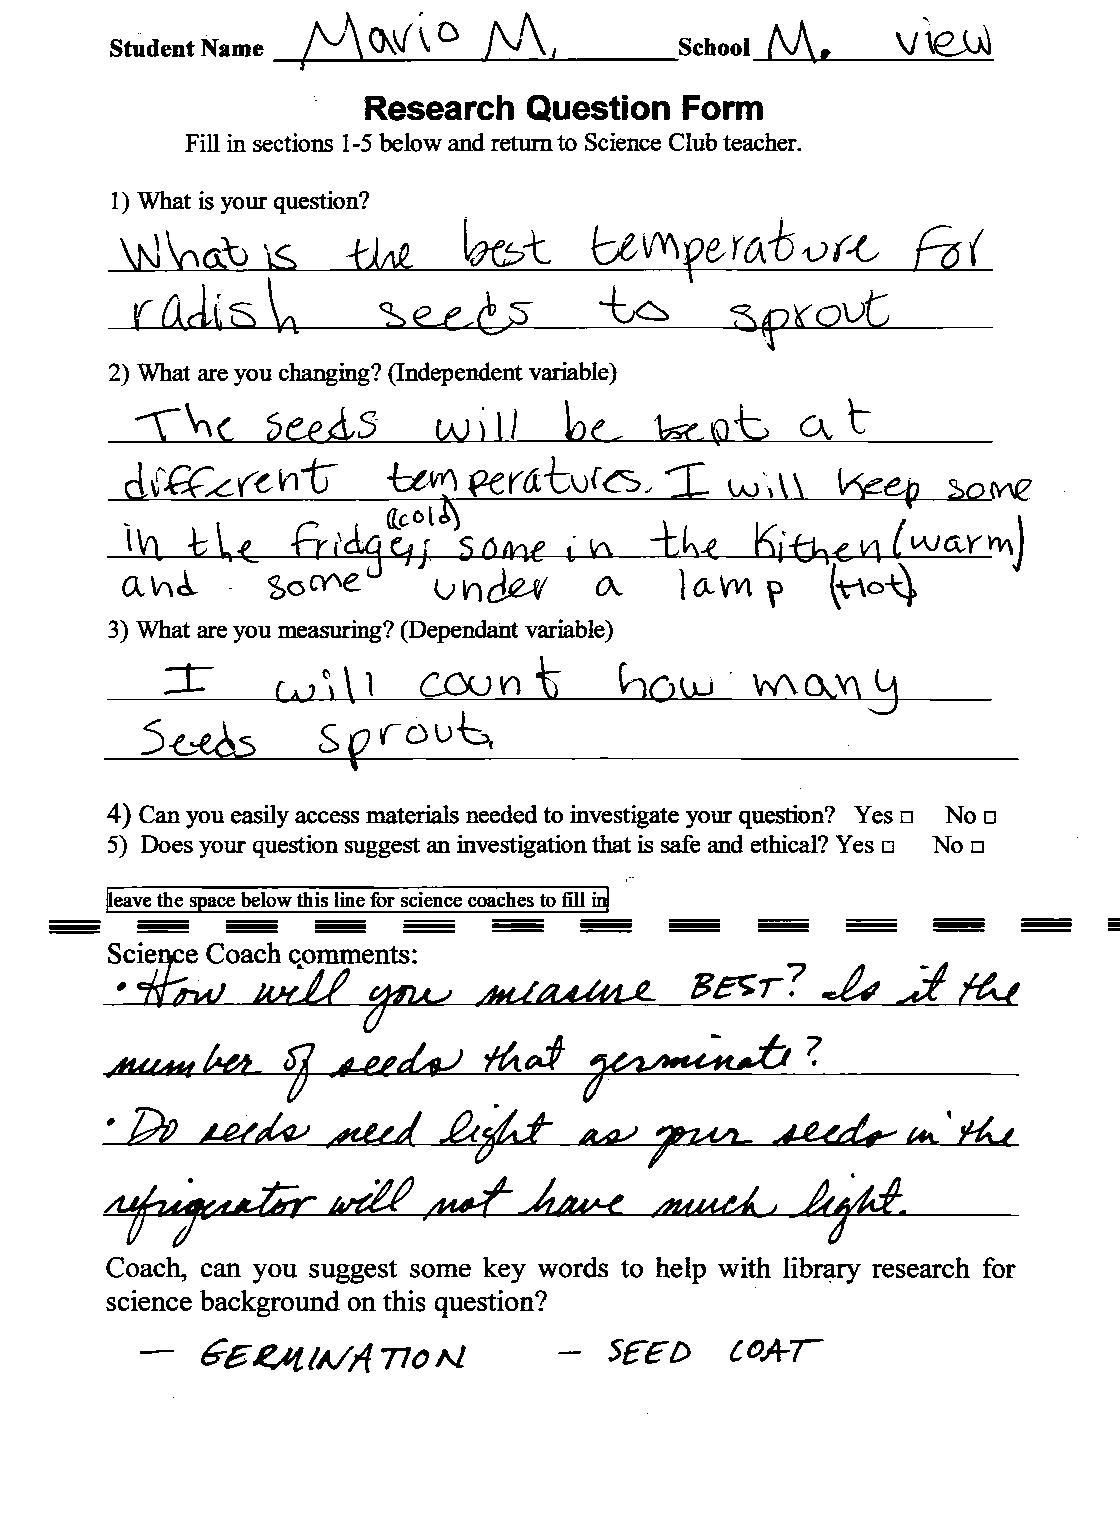 Student Name Mario M. School M. view
Research Question Form
Fill in sections 1-5 below and return to Science Club teacher.
1) What is your question?
What is the best temperature for
radish seeds to sprout
2) What are you changing? (Independent variable)
The seeds will be kept at
different temperatures. I will keep some
(cold)
in the fridge, some in the kithen (warm)
and some under a lamp (Hot)
3) What are you measuring? (Dependant variable)
I will count how many
seeds sprout.
4) Can you easily access materials needed to investigate your question? Yes □ No □
5) Does your question suggest an investigation that is safe and ethical? Yes □ No □
leave the space below this line for science coaches to fill in
Science Coach comments:
• How will you measure BEST? Is it the
number of seeds that germinate?
• Do seeds need light as your seeds in the
refrigerator will not have much light.
Coach, can you suggest some key words to help with library research for
science background on this question?
— GERMINATION – SEED COAT